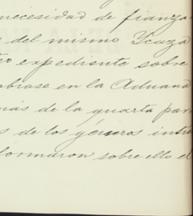 necesidad de fianza
del mismo Ycaza
expediente sobre
en la Aduana
más de la quarta par
s de los géneros intro
formaron sobre ello e